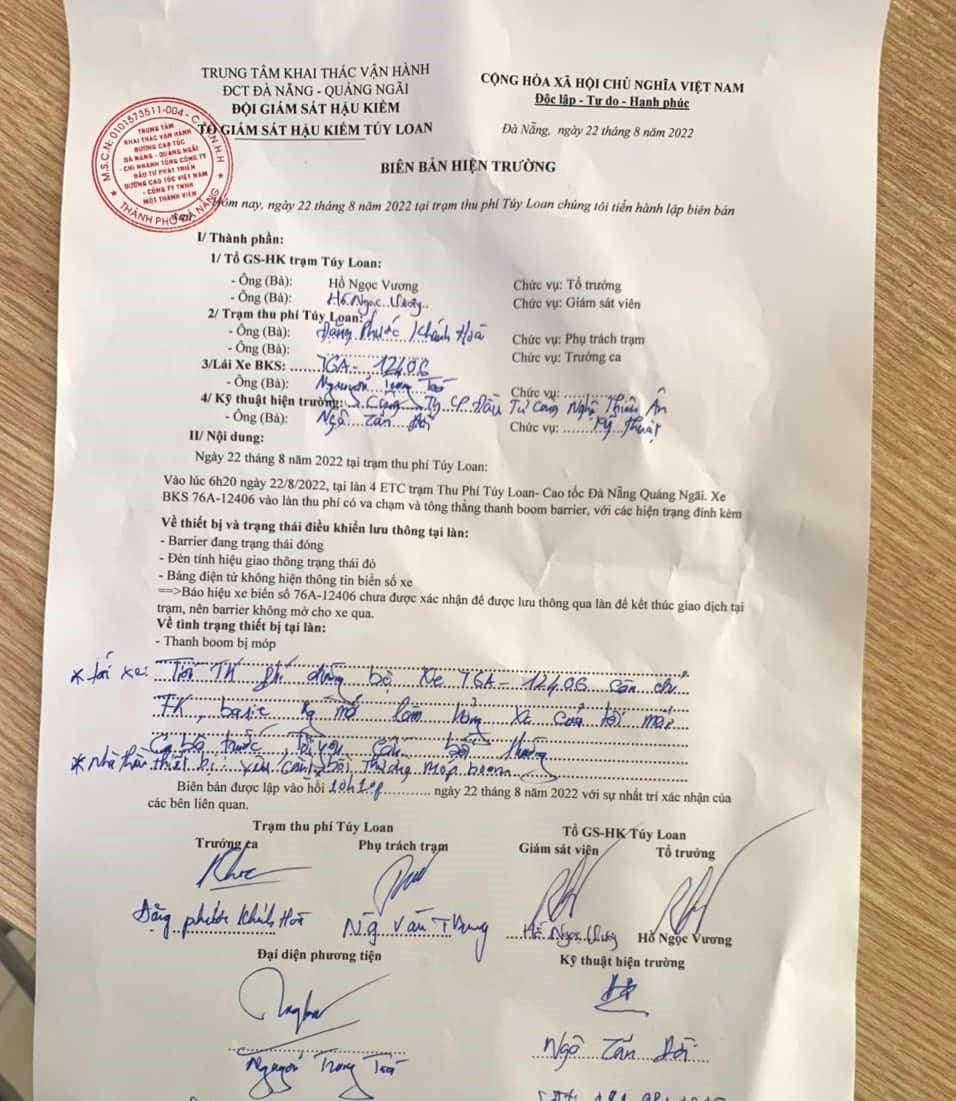 TRUNG TÂM KHAI THÁC VẬN HÀNH
ĐCT ĐÀ NẴNG - QUẢNG NGÃI
ĐỘI GIÁM SÁT HẬU KIỂM
TỔ GIÁM SÁT HẬU KIỂM TÚY LOAN
CỘNG HÒA XÃ HỘI CHỦ NGHĨA VIỆT NAM
Độc lập - Tự do - Hạnh phúc
Đà Nẵng, ngày 22 tháng 8 năm 2022
M.S.C.N: 0101573511-004 - C.T.T.N.H.H
TRUNG TÂM
KHAI THÁC VẬN HÀNH
ĐƯỜNG CAO TỐC
ĐÀ NẴNG - QUẢNG NGÃI
- CHI NHÁNH TỔNG CÔNG TY
ĐẦU TƯ PHÁT TRIỂN
ĐƯỜNG CAO TỐC VIỆT NAM
- CÔNG TY TNHH
MỘT THÀNH VIÊN
THÀNH PHỐ ĐÀ NẴNG
BIÊN BẢN HIỆN TRƯỜNG
Hôm nay, ngày 22 tháng 8 năm 2022 tại trạm thu phí Túy Loan chúng tôi tiến hành lập biên bản
I/ Thành phần:
1/ Tổ GS-HK trạm Túy Loan:
- Ông (Bà): Hồ Ngọc Vương Chức vụ: Tổ trưởng
- Ông (Bà): Hồ Ngọc Chức vụ: Giám sát viên
2/ Trạm thu phí Túy Loan:
- Ông (Bà): Đặng Phước Khánh Hoà Chức vụ: Phụ trách trạm
- Ông (Bà): Chức vụ: Trưởng ca
3/Lái Xe BKS: 76A-12406
- Ông (Bà): Nguyễn Trọng Chức vụ:
4/ Kỹ thuật hiện trường: Công Ty CP Đầu Tư Công Nghệ Thiên Ân
- Ông (Bà): Ngô Tấn Chức vụ: Kỹ thuật
II/ Nội dung:
Ngày 22 tháng 8 năm 2022 tại trạm thu phí Túy Loan:
Vào lúc 6h20 ngày 22/8/2022, tại làn 4 ETC trạm Thu Phí Túy Loan- Cao tốc Đà Nẵng Quảng Ngãi. Xe
BKS 76A-12406 vào làn thu phí có va chạm và tông thẳng thanh boom barrier, với các hiện trạng đính kèm
Về thiết bị và trạng thái điều khiển lưu thông tại làn:
- Barrier đang trạng thái đóng
- Đèn tính hiệu giao thông trạng thái đỏ
- Bảng điện tử không hiện thông tin biển số xe
==>Báo hiệu xe biển số 76A-12406 chưa được xác nhận để được lưu thông qua làn để kết thúc giao dịch tại
trạm, nên barrier không mở cho xe qua.
Về tình trạng thiết bị tại làn:
- Thanh boom bị móp
* lái xe: Tôi TK bộ xe 76A-12406
mở làm hỏng xe của tôi
trước, tôi yêu cầu bồi thường
* nhà thầu thiết bị: yêu cầu bồi thường móp boom
Biên bản được lập vào hồi ngày 22 tháng 8 năm 2022 với sự nhất trí xác nhận của
các bên liên quan.
Trạm thu phí Túy Loan Tổ GS-HK Túy Loan
Trưởng ca Phụ trách trạm Giám sát viên Tổ trưởng
Đặng phước Khánh Hoà Ng Văn Hồ Ngọc Hồ Ngọc Vương
Đại diện phương tiện Kỹ thuật hiện trường
Nguyễn Trọng Ngô Tấn